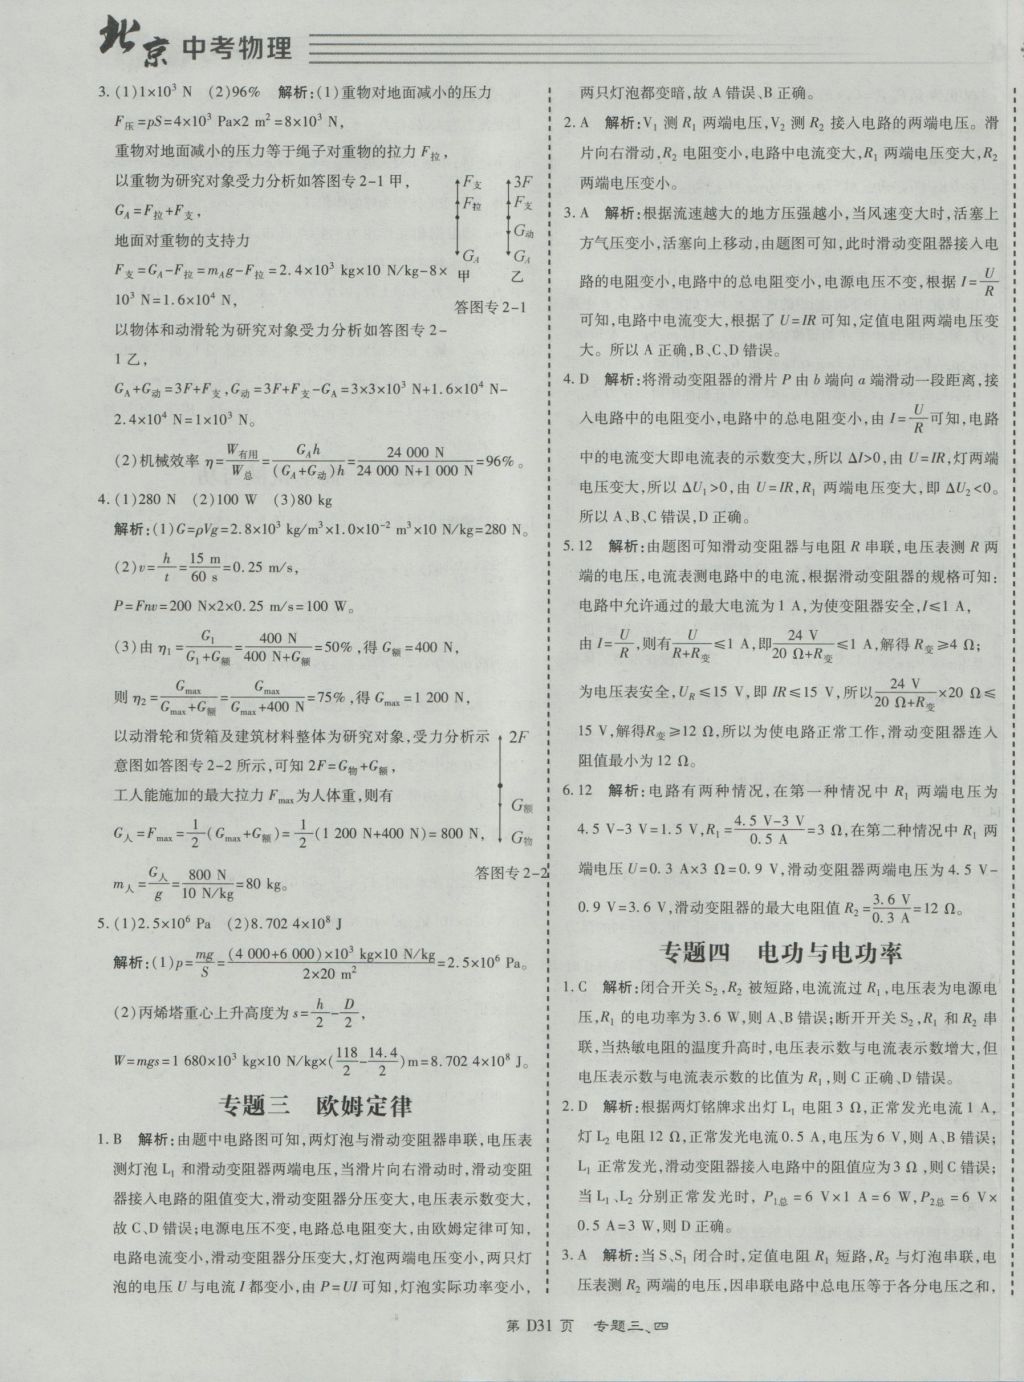 北京 中考物理
3. (1)1×10³ N (2)96% 解析:(1)重物对地面减小的压力
F压=pS=4×10³ Pa×2 m²=8×10³ N,
重物对地面减小的压力等于绳子对重物的拉力 F拉,
以重物为研究对象受力分析如答图专2-1甲,
G_A=F拉+F支,
地面对重物的支持力
F支=G_A-F拉=m_Ag-F拉=2.4×10³ kg×10 N/kg-8×
10³ N=1.6×10⁴ N,
以物体和动滑轮为研究对象受力分析如答图专2-
1乙,
F支 F拉 G_A 甲
3F F支 G动 G_A 乙
答图专2-1
G_A+G动=3F+F支,G动=3F+F支-G_A=3×3×10³ N+1.6×10⁴ N-
2.4×10⁴ N=1×10³ N。
(2)机械效率 η=W有用/W总=G_Ah/(G_A+G动)h=24 000 N/24 000 N+1 000 N=96%。
4. (1)280 N (2)100 W (3)80 kg
解析:(1)G=ρVg=2.8×10³ kg/m³×1.0×10⁻² m³×10 N/kg=280 N。
(2)v=h/t=15 m/60 s=0.25 m/s,
P=Fnv=200 N×2×0.25 m/s=100 W。
(3)由 η₁=G₁/G₁+G额=400 N/400 N+G额=50%,得 G额=400 N,
则 η₂=Gmax/Gmax+G额=Gmax/Gmax+400 N=75%,得 Gmax=1 200 N,
以动滑轮和货箱及建筑材料整体为研究对象,受力分析示
意图如答图专2-2所示,可知 2F=G物+G额,
工人能施加的最大拉力 Fmax为人体重,则有
G人=Fmax=1/2(Gmax+G额)=1/2(1 200 N+400 N)=800 N,
m人=G人/g=800 N/10 N/kg=80 kg。
2F G额 G物
答图专2-2
5. (1)2.5×10⁶ Pa (2)8.702 4×10⁸ J
解析:(1)p=mg/S=(4 000+6 000)×10³ kg×10 N/kg/2×20 m²=2.5×10⁶ Pa。
(2)丙烯塔重心上升高度为 s=h/2-D/2,
W=mgs=1 680×10³ kg×10 N/kg×(118/2-14.4/2)m=8.702 4×10⁸ J。
专题三 欧姆定律
1. B 解析:由题中电路图可知,两灯泡与滑动变阻器串联,电压表
测灯泡 L₁ 和滑动变阻器两端电压,当滑片向右滑动时,滑动变阻
器接入电路的阻值变大,滑动变阻器分压变大,电压表示数变大,
故 C、D 错误;电源电压不变,电路总电阻变大,由欧姆定律可知,
电路电流变小,滑动变阻器分压变大,灯泡两端电压变小,两只灯
泡的电压 U 与电流 I 都变小,由 P=UI 可知,灯泡实际功率变小,
两只灯泡都变暗,故 A 错误、B 正确。
2. A 解析:V₁ 测 R₁ 两端电压,V₂ 测 R₂ 接入电路的两端电压。滑
片向右滑动,R₂ 电阻变小,电路中电流变大,R₁ 两端电压变大,R₂
两端电压变小。
3. A 解析:根据流速越大的地方压强越小,当风速变大时,活塞上
方气压变小,活塞向上移动,由题图可知,此时滑动变阻器接入电
路的电阻变小,电路中的总电阻变小,电源电压不变,根据 I=U/R
可知,电路中电流变大,根据了 U=IR 可知,定值电阻两端电压变
大。所以 A 正确,B、C、D 错误。
4. D 解析:将滑动变阻器的滑片 P 由 b 端向 a 端滑动一段距离,接
入电路中的电阻变小,电路中的总电阻变小,由 I=U/R可知,电路
中的电流变大即电流表的示数变大,所以 ΔI>0,由 U=IR,灯两端
电压变大,所以 ΔU₁>0,由 U=IR,R₁ 两端电压变大,即 ΔU₂<0。
所以 A、B、C 错误,D 正确。
5. 12 解析:由题图可知滑动变阻器与电阻 R 串联,电压表测 R 两
端的电压,电流表测电路中的电流,根据滑动变阻器的规格可知:
电路中允许通过的最大电流为 1 A,为使变阻器安全,I≤1 A,
由 I=U/R,则有U/R+R变≤1 A,即24 V/20 Ω+R变≤1 A,解得 R变≥4 Ω;
为电压表安全,U_R≤15 V,即 IR≤15 V,所以24 V/20 Ω+R变×20 Ω≤
15 V,解得R变≥12 Ω,所以为使电路正常工作,滑动变阻器连入
阻值最小为 12 Ω。
6. 12 解析:电路有两种情况,在第一种情况中 R₁ 两端电压为
4.5 V-3 V=1.5 V,R₁=4.5 V-3 V/0.5 A=3 Ω,在第二种情况中 R₁ 两
端电压 U=0.3 A×3 Ω=0.9 V,滑动变阻器两端电压为 4.5 V-
0.9 V=3.6 V,滑动变阻器的最大电阻值 R₂=3.6 V/0.3 A=12 Ω。
专题四 电功与电功率
1. C 解析:闭合开关 S₂,R₂ 被短路,电流流过 R₁,电压表为电源电
压,R₁ 的电功率为 3.6 W,则 A、B 错误;断开开关 S₂,R₁ 和 R₂ 串
联,当热敏电阻的温度升高时,电压表示数与电流表示数增大,但
电压表示数与电流表示数的比值为 R₁,则 C 正确、D 错误。
2. D 解析:根据两灯铭牌求出灯 L₁ 电阻 3 Ω,正常发光电流 1 A,
灯 L₂ 电阻 12 Ω,正常发光电流 0.5 A,电压为 6 V,则 A、B 错误;
L₁ 正常发光,滑动变阻器接入电路中的阻值应为 3 Ω,则 C 错误;
当 L₁、L₂ 分别正常发光时, P₁总=6 V×1 A=6 W,P₂总=6 V×
0.5 A=3 W,则 D 正确。
3. A 解析:当 S、S₁ 闭合时,定值电阻 R₁ 短路,R₂ 与灯泡串联,电
压表测 R₂ 两端的电压,因串联电路中总电压等于各分电压之和,
第 D31 页 专题三、四